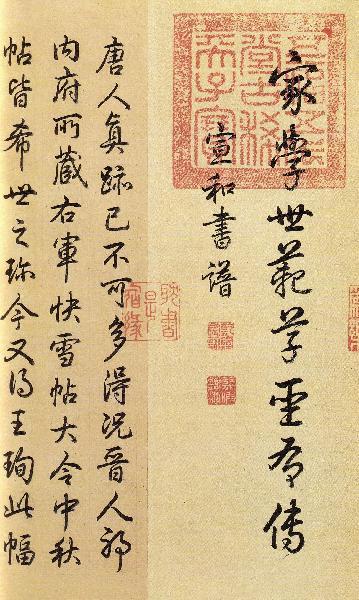 家學世範草聖有傳
宣和書譜
唐人真跡已不可多得況晉人耶
内府所藏右軍快雪帖大令中秋
帖皆希世之珍今又得王珣此幅